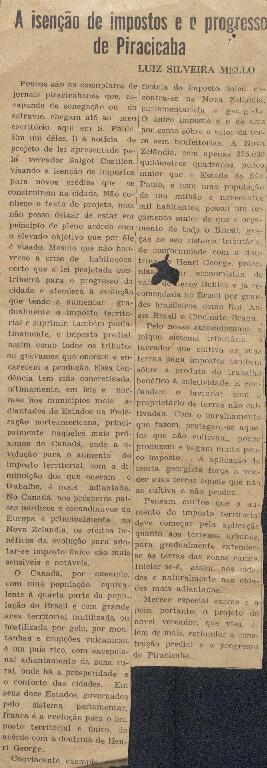 A isenção de impostos e o progresso
de Piracicaba
LUIZ SILVEIRA MELLO
Poucos são os exemplares de
jornais piracicabanos que, es-
capando da sonegação ou do
extravio, chegam até ao meu
escritório, aqui em S. Paulo.
Em um dêles, li a notícia de
projeto de lei apresentado pe-
lo vereador Salgot Castillon,
visando a isenção de impostos
para novos prédios que se
construirem na cidade. Não co-
nheço o texto do projeto, mas
não posso deixar de estar em
princípio de pleno acôrdo com
o elevado objetivo que por êle
é visado. Mesmo que não hou-
vesse a crise de habitações
certo que a lei projetada con-
tribuirá para o progresso da
cidade e atenderá à evolução
que tende a aumentar gra-
dualmente o imposto territo-
rial e suprimir, também paula-
tinamente, o imposto predial
assim como todos os tributos
ou gravames que oneram e en-
carecem a produção. Essa ten-
dência tem sido concretizada,
ultimamente, em leis e nor-
mas nos municípios mais a-
diantados de Estados na Fede-
ração norteamericana, princi-
palmente naqueles mais pró-
ximos do Canadá, onde a e-
volução para o aumento do
imposto territorial, com a di-
minuição dos que oneram o
trabalho, é mais adiantada.
No Canadá, nos prósperos paí-
ses nórdicos e escandinavos da
Europa e principalmente na
Nova Zelândia, os efeitos be-
néficos da evolução para ado-
tar-se imposto único são mais
sensíveis e notáveis.
O Canadá, por exemplo,
com uma população equiva-
lente à quarta parte da popu-
lação do Brasil e com grande
área territorial inutilizada ou
hostilizada por gelo, por mon-
tanhas e erupções vulcanicas,
é um país rico, com excepcio-
nal adiantamento da zona ru-
ral, onde há a prosperidade e
o conforto das cidades. Em
seus doze Estados, governados
pelo sistema parlamentar,
franca é a evolução para o im-
posto territorial e único, de
acôrdo com a doutrina de Hen-
ri George.
Convincente exemplo
ficária do imposto único, en-
contra-se na Nova Zelândia,
parlamentarista e georgista.
O único imposto é o de
por cento sôbre o valor da ter-
ra sem benfeitorias. A Nova
Zelândia, com apenas 275.030
quilômetros quadrados, pouco
maior que o Estado de São
Paulo, e com uma população
de um milhão e novecentos
mil habitantes, possui um or-
çamento maior do que o orça-
mento de todo o Brasil, gra-
ças ao seu sistema tributário,
de conformidade com a dou-
Henri George,
economistas do
Leroy Bellieu e já re-
comendada no Brasil por gran-
des brasileiros, como Rui, As-
sis Brasil e Cincinato Braga.
Pelo nosso atrasadissimo
sistema tributário, o
lavrador que cultiva as suas
terras paga imposto também
sôbre o produto do trabalho
benéfico à coletividade. E con-
fundem o lavrador com o
proprietário de terras não cul-
tivadas. Com o baralhamento
que fazem, protegem-se aque-
les que não cultivam, pouco
produzem e pagam muito pou-
co imposto. A aplicação da
teoria georgista força a ven-
der suas terras aquele que não
as cultiva e não produz.
Pensam muitos que o au-
mento do imposto territorial
deve começar pela aplicação
quanto aos terrenos urbanos
para gradualmente extender-
se às terras das zonas rurais,
iniciar-se-á, assim, nas cida-
des e naturalmente nas cida-
des mais adiantadas.
Merece especial exame e a-
poio, portanto, o projeto do
novel vereador, que visa, a-
lém de mais, estimular a cons-
trução predial e o progresso
de Piracicaba.